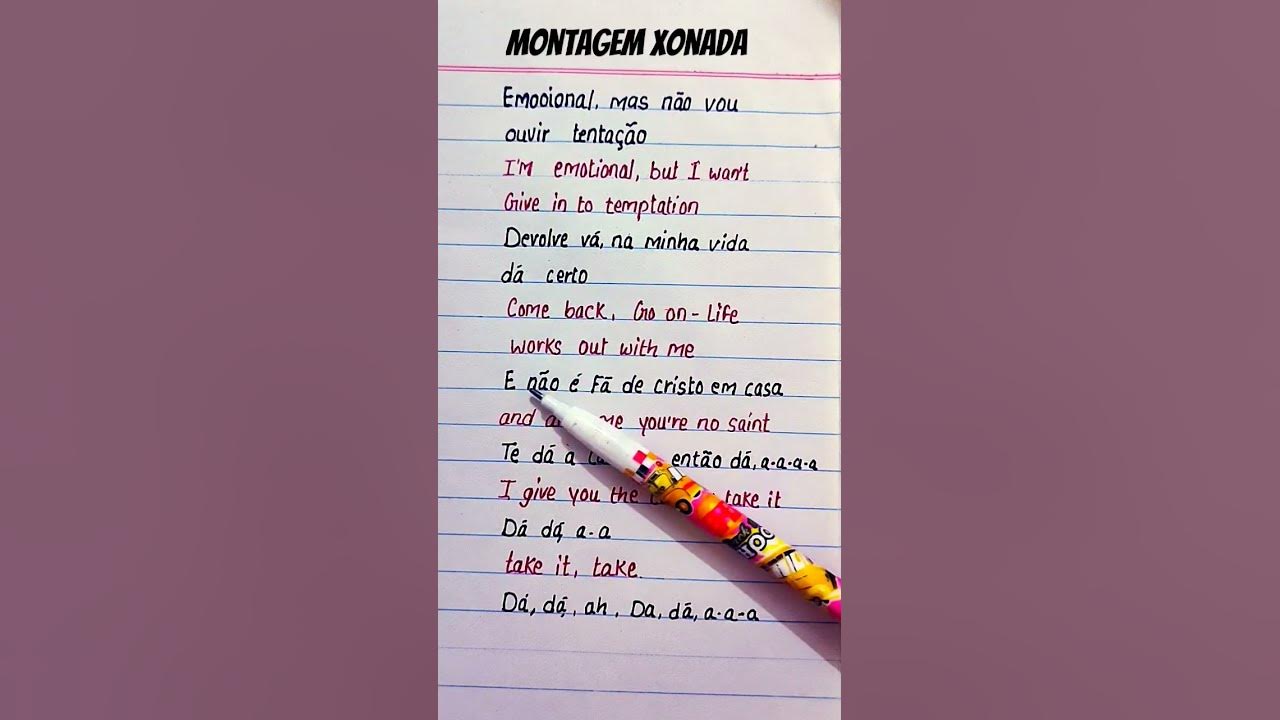 MONTAGEM XONADA
Emooional, mas não vou
ouvir tentação
I'M emotional, but I wan't
Give in to temptation
Devolve vá, na minha vida
dá certo
Come back, Go on - Life
works out with me
E não é Fã de cristo em casa
and me you're no saint
Te dá a então dá, a-a-a-a
I give you the take it
Dá dá, a-a
take it, take.
Dá, dá, ah, Da, dá, a-a-a